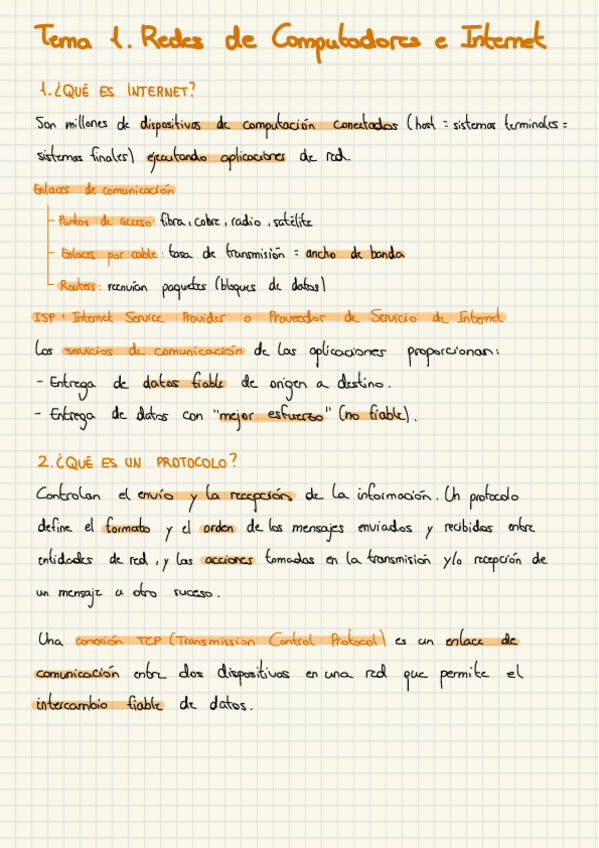 Tema 1. Redes de Computadores e Internet
1. ¿QUÉ ES INTERNET?
Son millones de dispositivos de computación conectados (host = sistemas terminales =
sistemas finales) ejecutando aplicaciones de red.
Enlaces de comunicación
Puntos de acceso: fibra, cobre, radio, satélite
Enlaces por cable: tasa de transmisión = ancho de banda
Routers: reenvían paquetes (bloques de datos)
ISP: Internet Service Provider o Proveedor de Servicio de Internet
Los servicios de comunicación de las aplicaciones proporcionan:
- Entrega de datos fiable de origen a destino.
- Entrega de datos con "mejor esfuerzo" (no fiable).
2. ¿QUÉ ES UN PROTOCOLO?
Controlan el envío y la recepción de la información. Un protocolo
define el formato y el orden de los mensajes enviados y recibidos entre
entidades de red, y las acciones tomadas en la transmisión y/o recepción de
un mensaje u otro suceso.
Una conexión TCP (Transmission Control Protocol) es un enlace de
comunicación entre dos dispositivos en una red que permite el
intercambio fiable de datos.